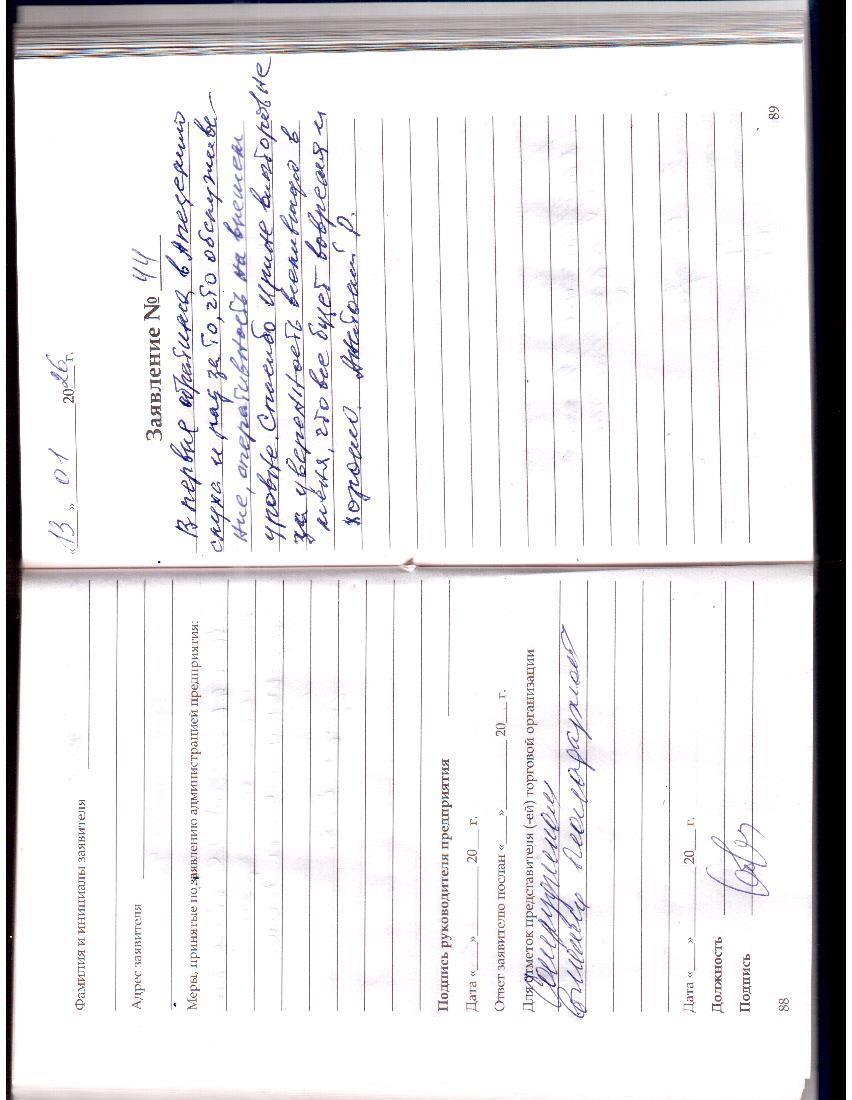 Фамилия и инициалы заявителя
Адрес заявителя
Меры, принятые по заявлению администрацией предприятия:
Подпись руководителя предприятия
Дата «___» ______ 20__ г.
Ответ заявителю послан «___» ______ 20__ г.
Для отметок представителя (-ей) торговой организации
объявить благодарность
Дата «___» ______ 20__ г.
Должность
Подпись
88
«13» 01 2026 г.
Заявление № 44
В первые обратился в
и рад за то, что обслужива-
ние, оперативность на высшем
уровне. Спасибо Ирине Викторовне
за уверенность вселившая в
меня, что все будет вовремя и
хорошо. Анатолий Р.
89